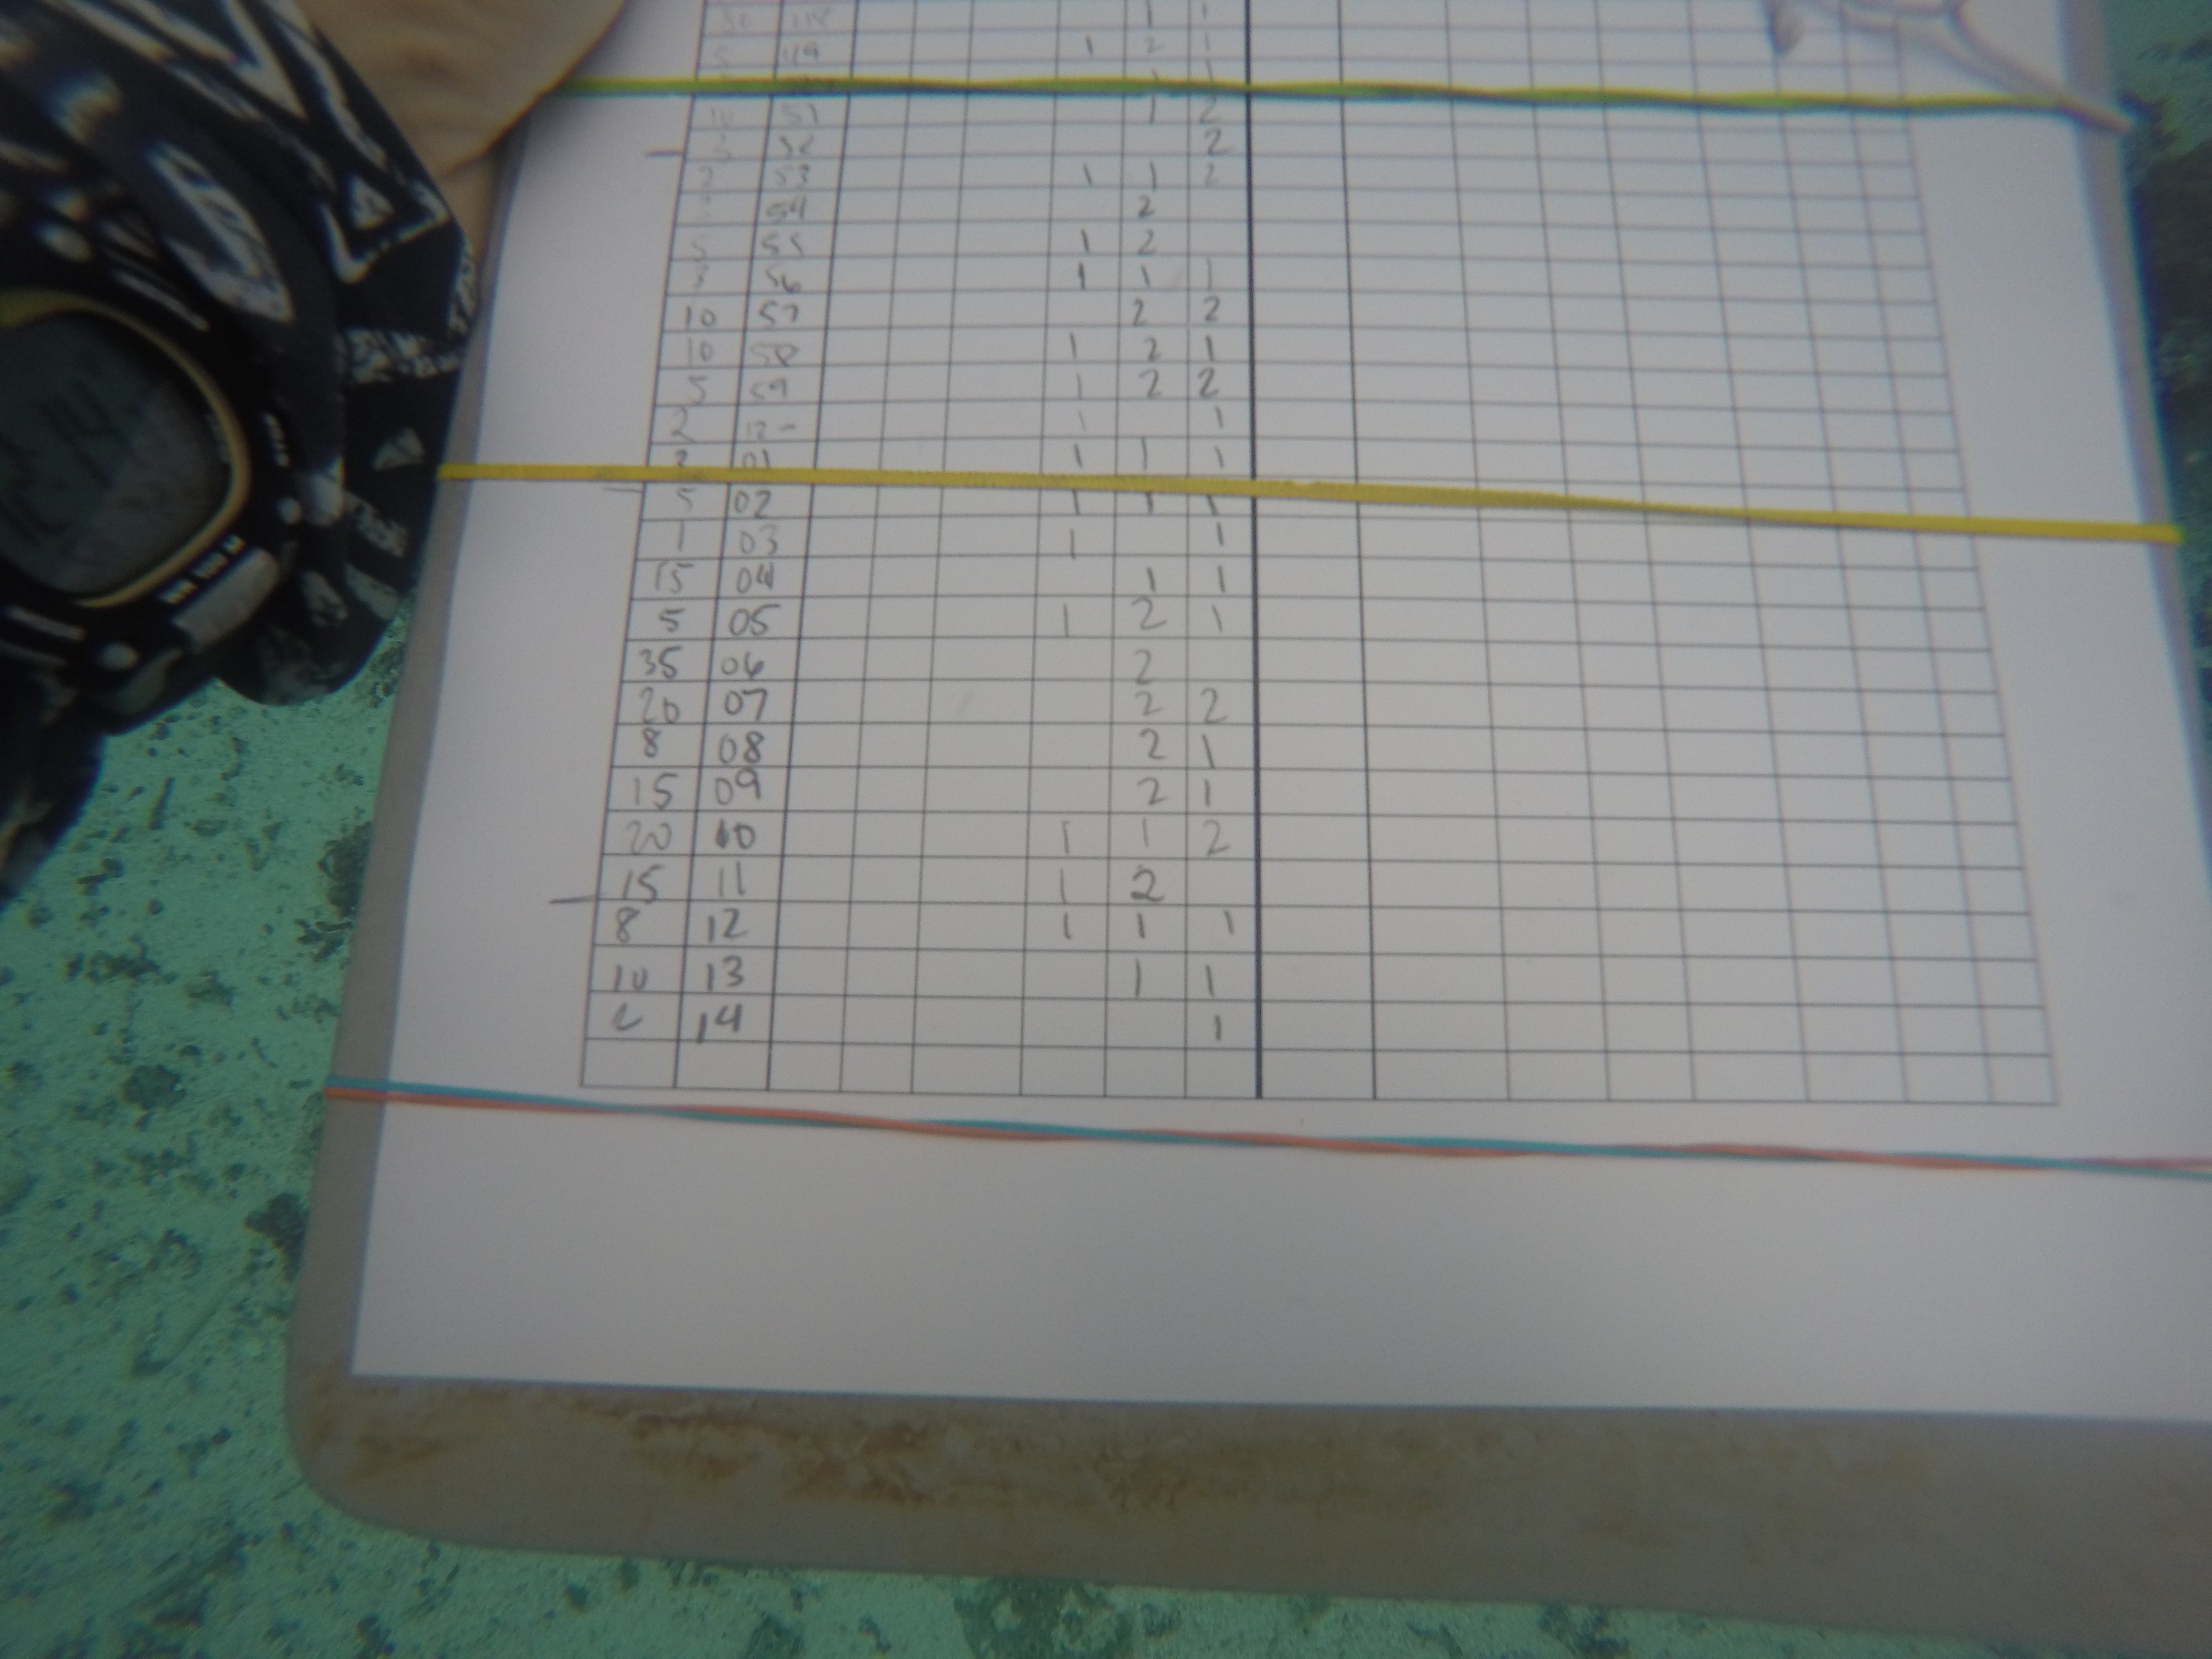 49 1 2 1
1 1
10 51 1 2
52 2
2 53 1 1 2
54 2
5 55 1 2
3 56 1 1 1
10 57 2 2
10 58 1 2 1
5 59 1 2 2
2 12 - 1 1
2 01 1 1 1
5 02 1 1 1
1 03 1 1
15 04 1 1
5 05 1 2 1
35 06 2
20 07 2 2
8 08 2 1
15 09 2 1
20 10 1 1 2
15 11 1 2
8 12 1 1 1
10 13 1 1
2 14 1